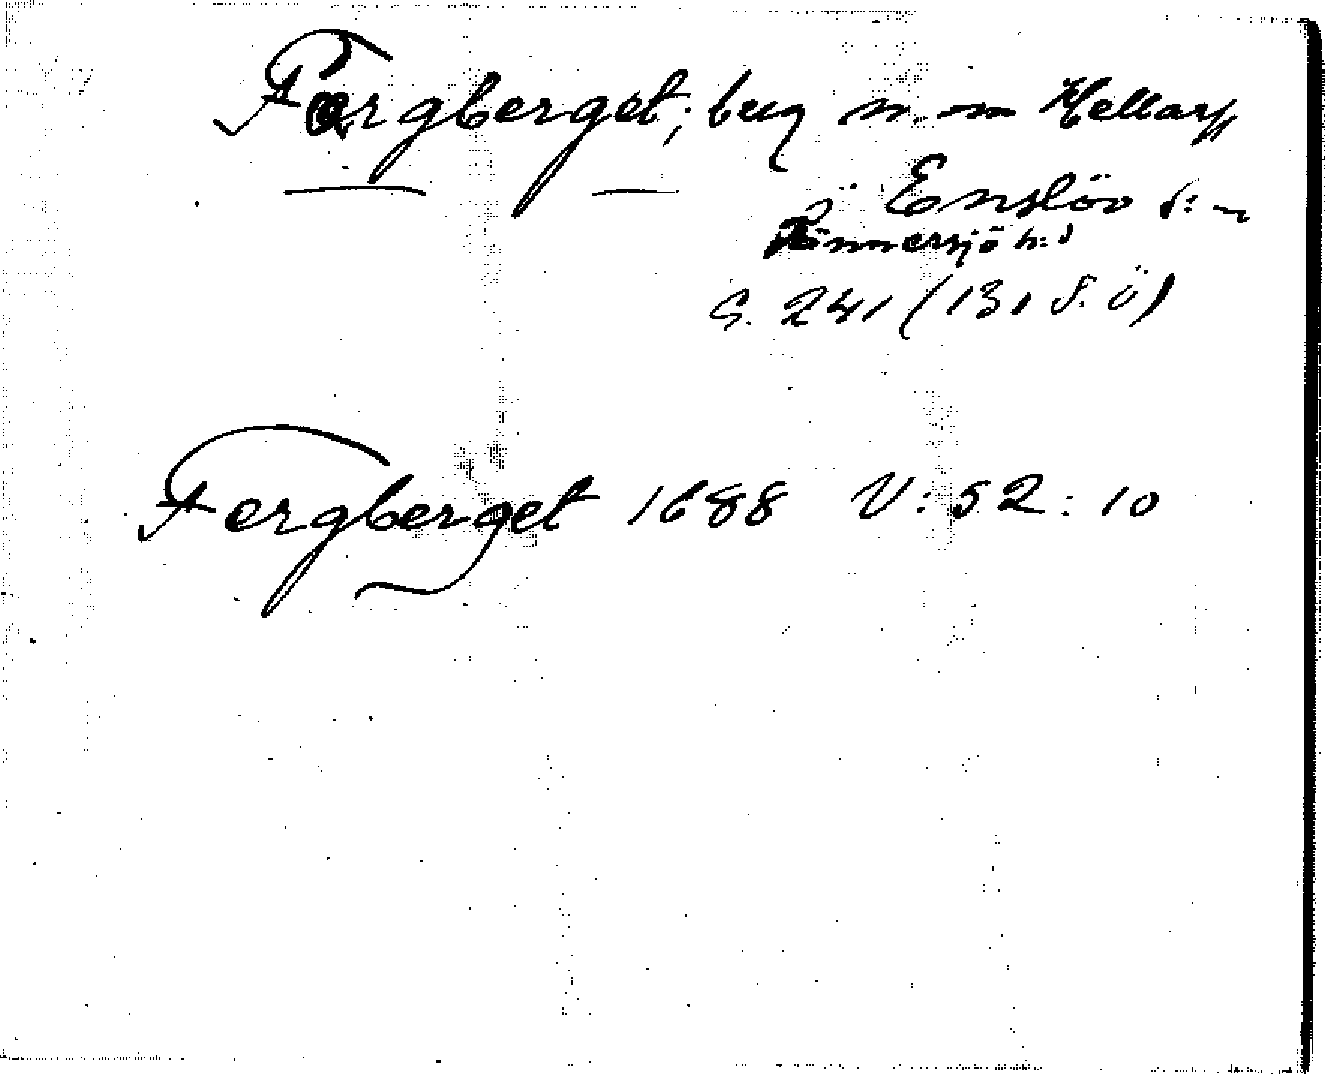 Färgberget; berg n. om Hellarp
Enslöv s:n
Tönnersjö h:d
G. 241 (131 S. Ö)
Fergberget 1688 V: 52: 10